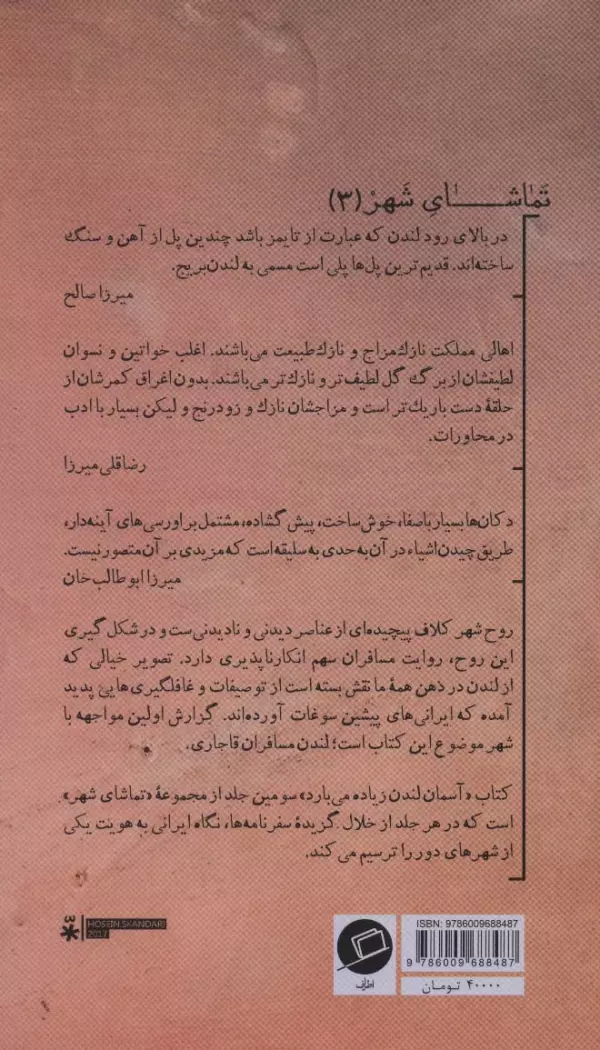 تَماشــــــــای شَهرْ (۳)
در بالای رود لندن که عبارت از تایمز باشد چندین پل از آهن و سنگ
ساخته‌اند. قدیم‌ترین پل‌ها پلی است مسمی به لندن‌بریج.
میرزا صالح
اهالی مملکت نازک‌مزاج و نازک‌طبیعت می‌باشند. اغلب خواتین و نسوان
لطیفشان از برگ گل لطیف‌تر و نازک‌تر می‌باشند. بدون اغراق کمرشان از
حلقهٔ دست باریک‌تر است و مزاجشان نازک و زودرنج و لیکن بسیار با ادب
در محاورات.
رضاقلی میرزا
دکان‌ها بسیار باصفا، خوش‌ساخت، پیش گشاده، مشتمل بر اورسی‌های آینه‌دار،
طریق چیدن اشیاء در آن به حدی به سلیقه است که مزیدی بر آن متصور نیست.
میرزا ابوطالب‌خان
روح شهر کلاف پیچیده‌ای از عناصر دیدنی و نادیدنی‌ست و در شکل‌گیری
این روح، روایت مسافران سهم انکارناپذیری دارد. تصویر خیالی که
از لندن در ذهن همهٔ ما نقش بسته است از توصیفات و غافلگیری‌هایی پدید
آمده که ایرانی‌های پیشین سوغات آورده‌اند. گزارش اولین مواجهه با
شهر موضوع این کتاب است؛ لندن مسافران قاجاری.
کتاب «آسمان لندن زیاده می‌بارد» سومین جلد از مجموعهٔ «تماشای شهر»
است که در هر جلد از خلال گزیدهٔ سفرنامه‌ها، نگاه ایرانی به هویت یکی
از شهرهای دور را ترسیم می‌کند.
HOSEIN.SKANDARI
2017
اطراف
ISBN: 9786009688487
9 786009 688487
۴۰۰۰۰ تومان